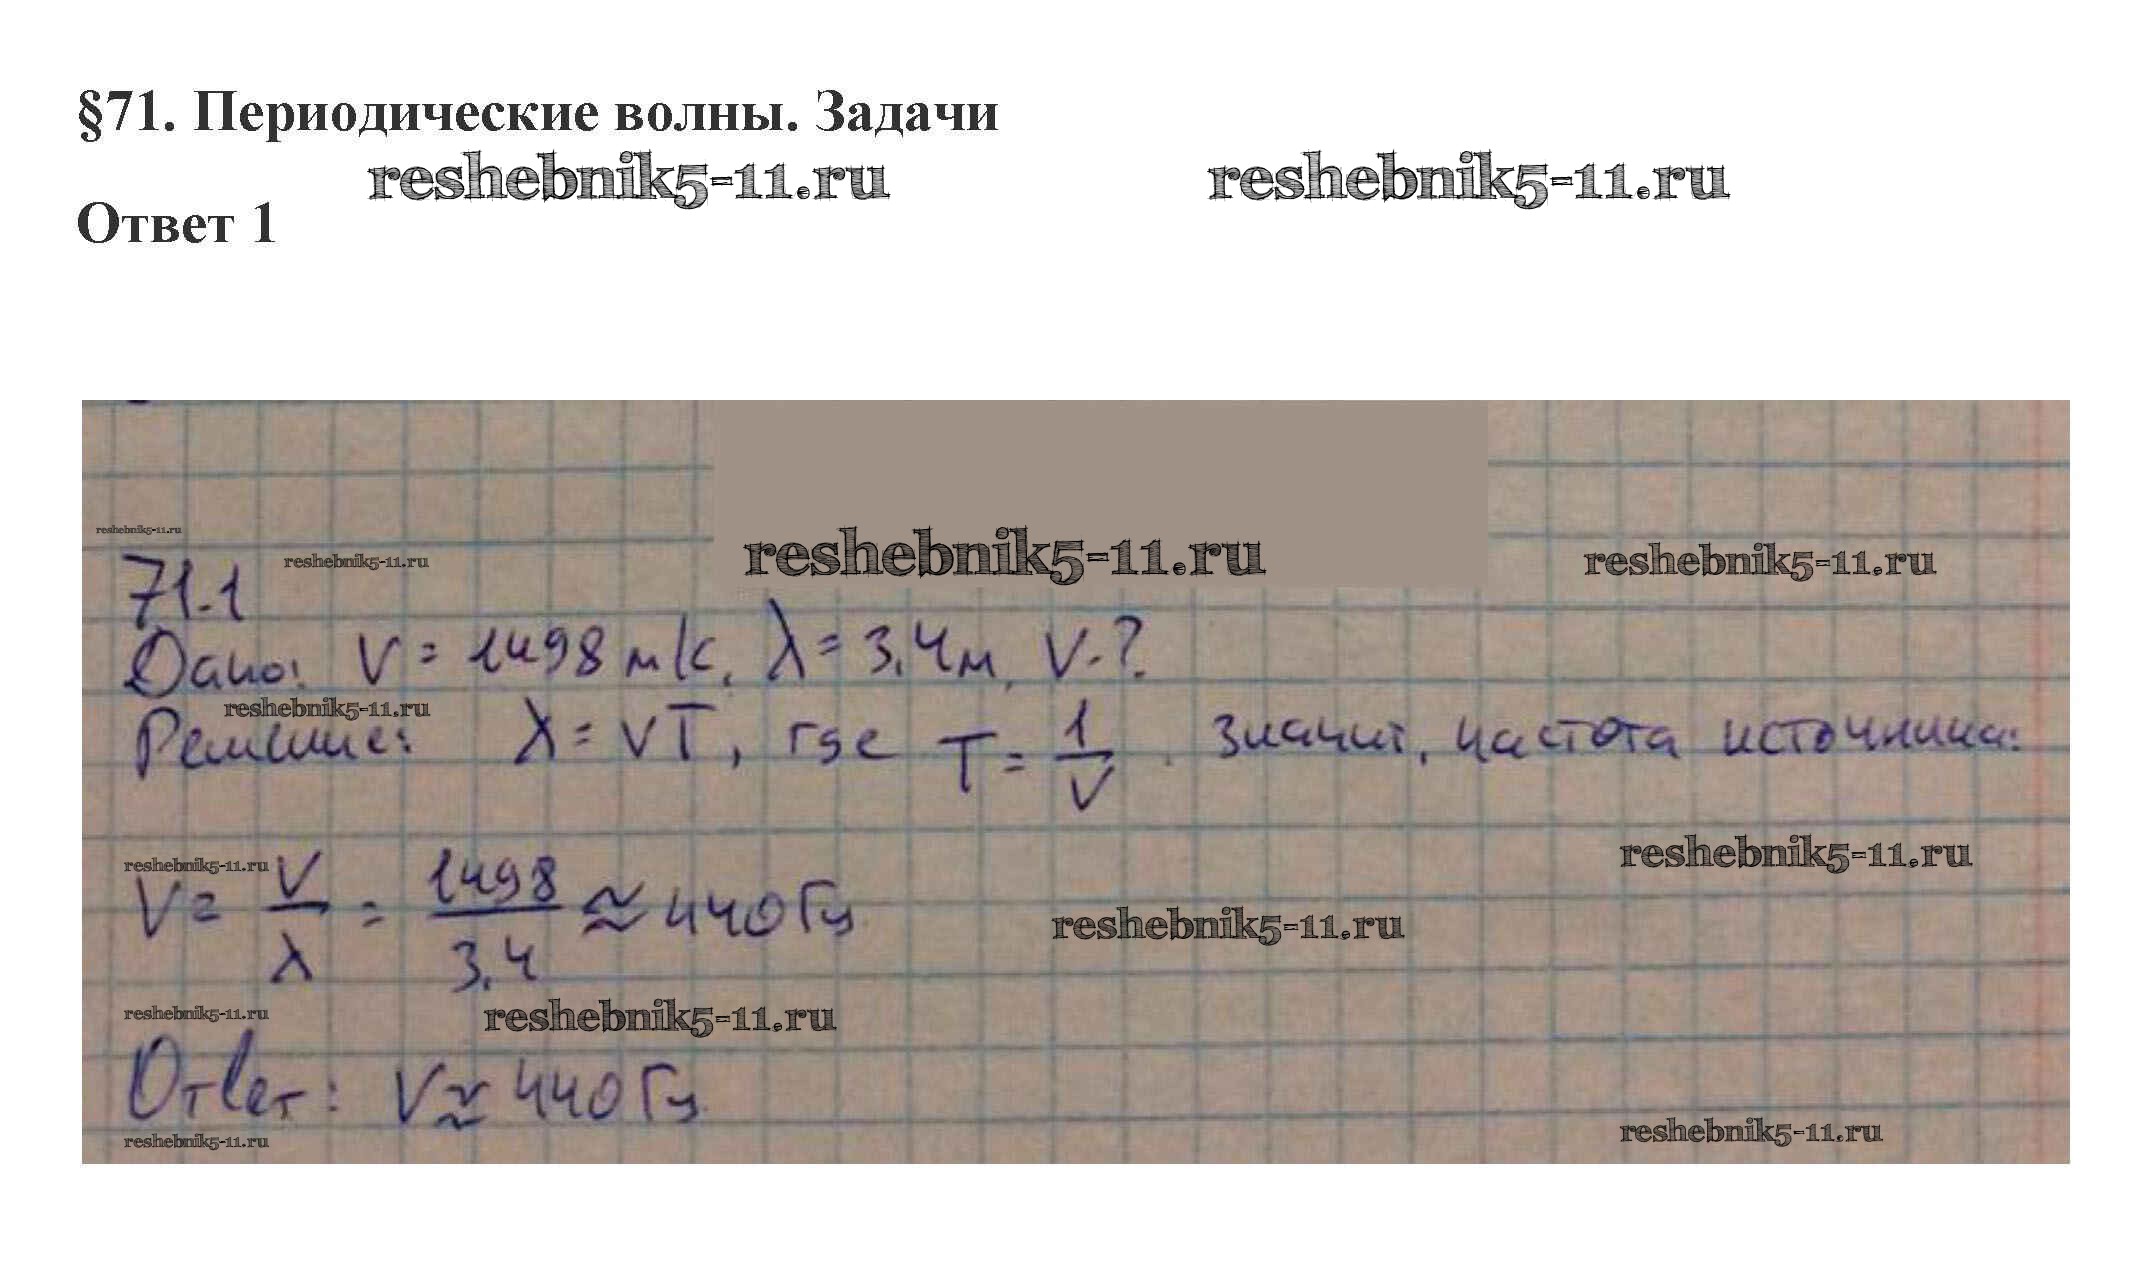 §71. Периодические волны. Задачи
reshebnik5-11.ru reshebnik5-11.ru
Ответ 1
reshebnik5-11.ru
reshebnik5-11.ru reshebnik5-11.ru reshebnik5-11.ru
71.1
Дано: V = 1498 м/с, λ = 3,4м, V-?
reshebnik5-11.ru
Решение: λ = VT, где T = 1/V. Значит, частота источника:
reshebnik5-11.ru reshebnik5-11.ru
V = V/λ = 1498/3,4 ≈ 440 Гц
reshebnik5-11.ru
reshebnik5-11.ru reshebnik5-11.ru
Ответ: V ≈ 440 Гц
reshebnik5-11.ru reshebnik5-11.ru